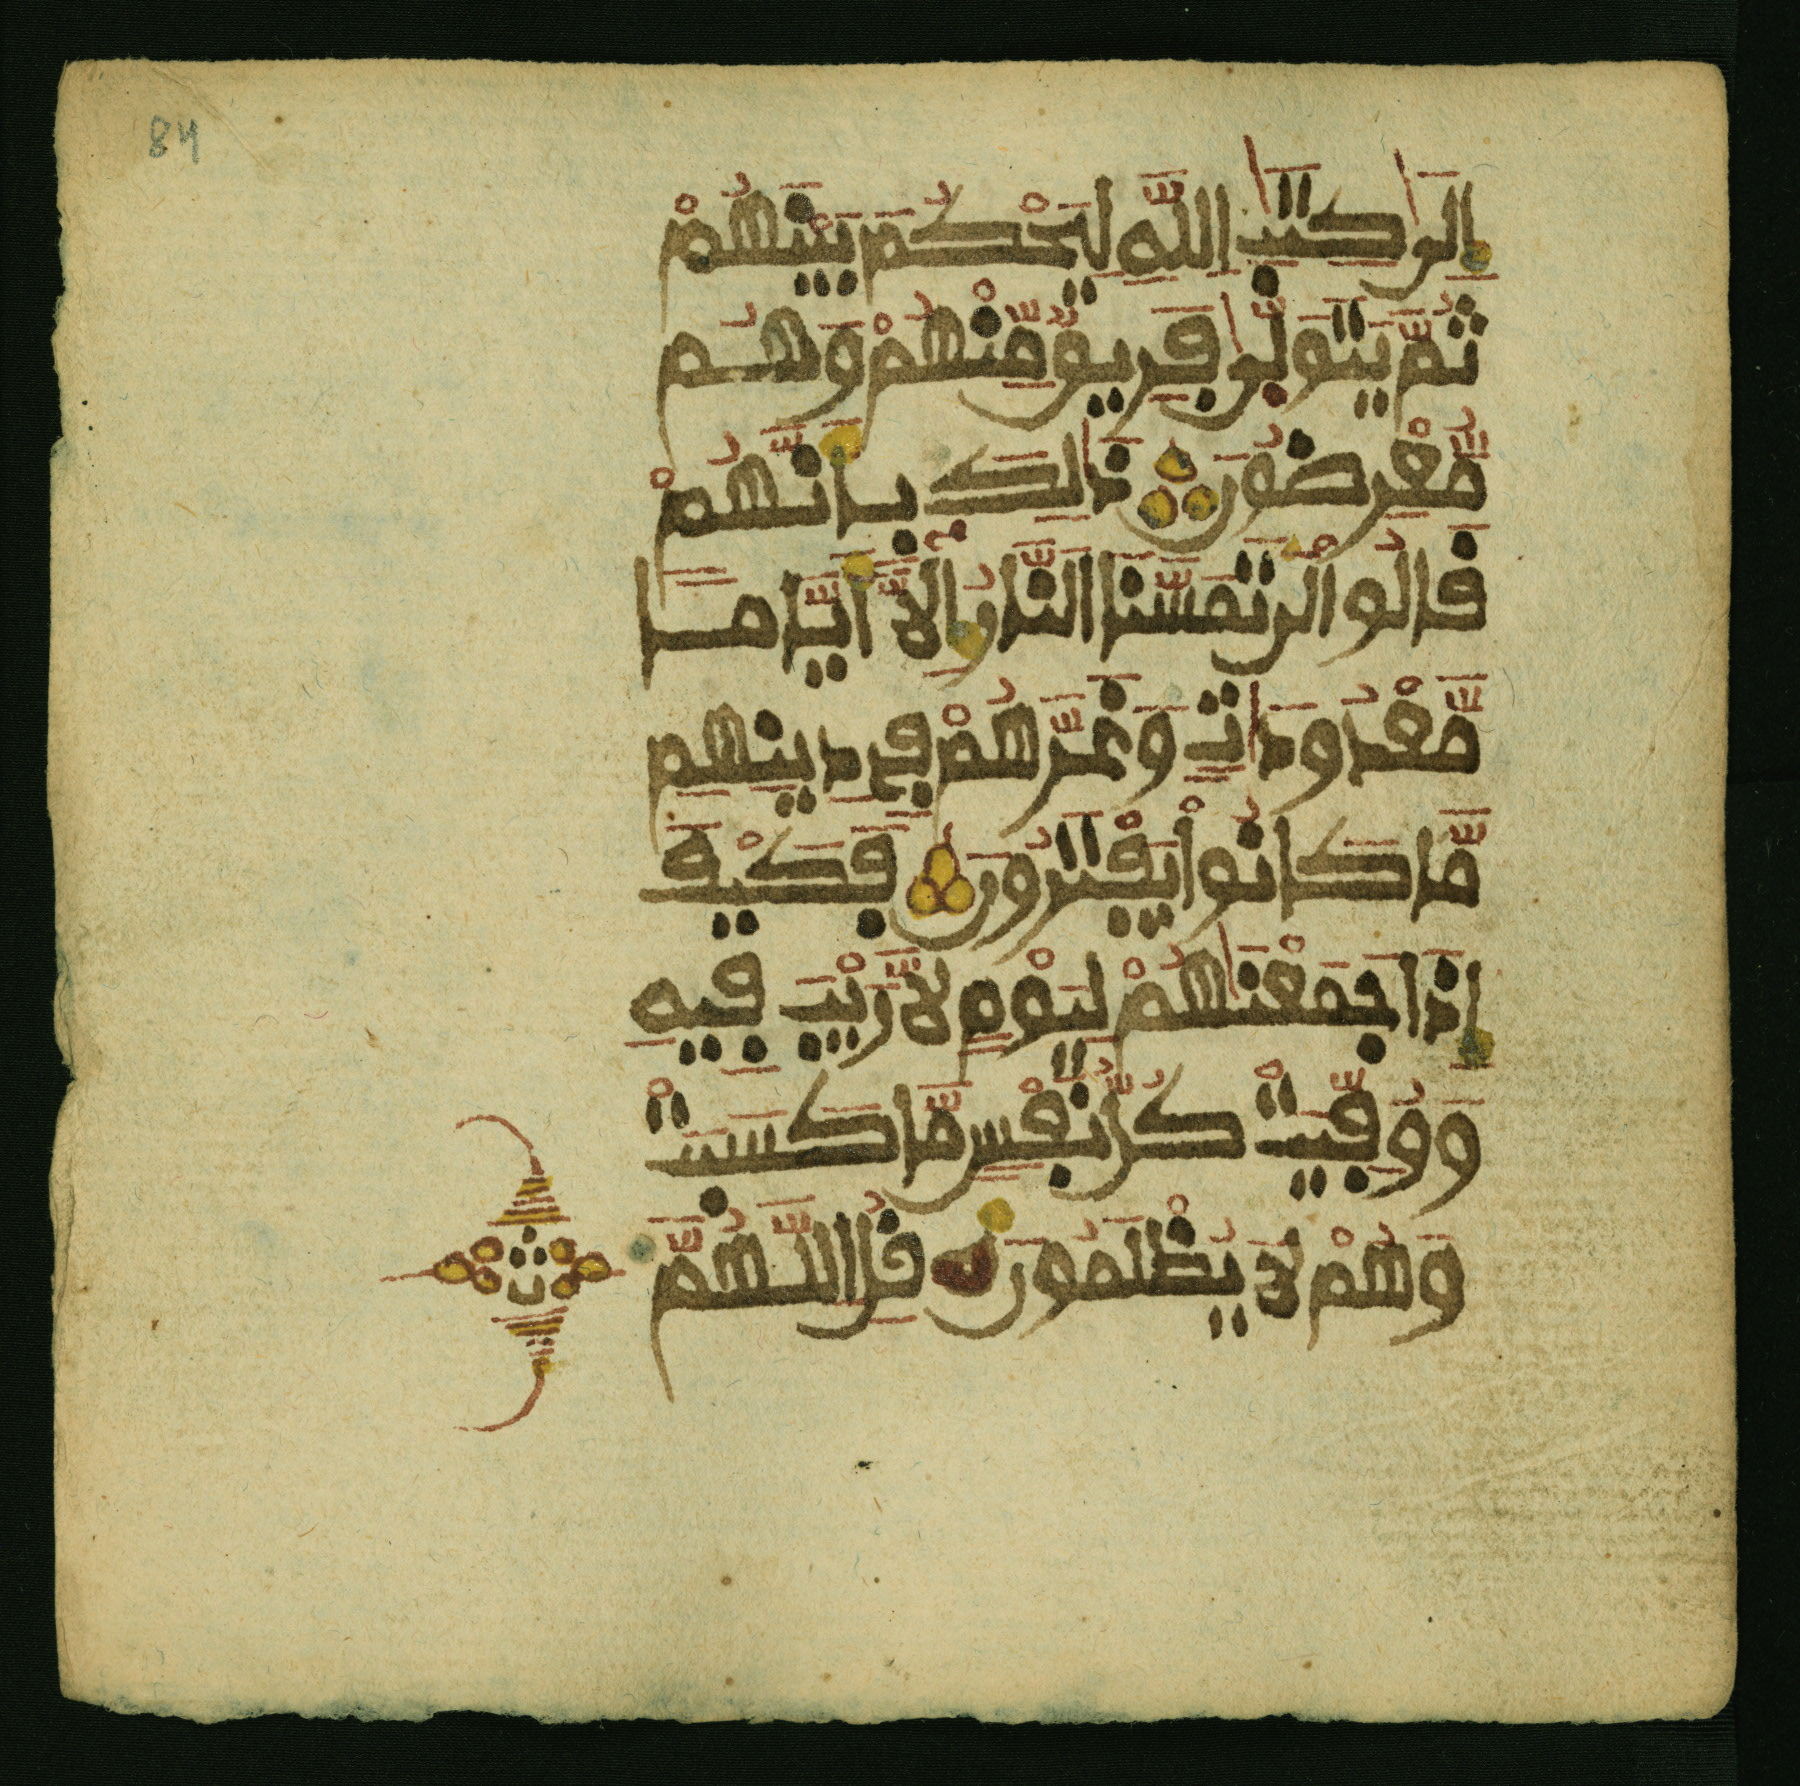 84
إِلَىٰ كِتَٰبِ اللَّهِ لِيَحْكُمَ بَيْنَهُمْ
ثُمَّ يَتَوَلَّىٰ فَرِيقٌ مِّنْهُمْ وَهُم
مُّعْرِضُونَ ذَٰلِكَ بِأَنَّهُمْ
قَالُواْ لَن تَمَسَّنَا النَّارُ إِلَّا أَيَّاماً
مَّعْدُودَٰتٍ وَغَرَّهُمْ فِى دِينِهِم
مَّا كَانُواْ يَفْتَرُونَ فَكَيْفَ
إِذَا جَمَعْنَٰهُمْ لِيَوْمٍ لَّا رَيْبَ فِيهِ
وَوُفِّيَتْ كُلُّ نَفْسٍ مَّا كَسَبَتْ
وَهُمْ لَا يُظْلَمُونَ قُلِ اللَّهُمَّ
ثمن